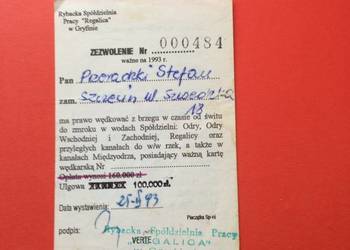 Rybacka Spółdzielnia
Pracy "Regalica"
w Gryfinie
ZEZWOLENIE Nr 000484
ważne na 1993 r.
Pan Stefan
zam. Szczecin ul.
18
ma prawo wędkować z brzegu w czasie od świtu
do zmroku w wodach Spółdzielni: Odry, Odry
Wschodniej i Zachodniej, Regalicy oraz
przyległych kanałach do w/w rzek, a także w
kanałach Międzyodrza, posiadający ważną kartę
wędkarską Nr
Opłata wynosi 160.000 zł
Ulgowa 100.000 zł.
Data wystawienia: 93
Pieczątka Sp-ni
podpis: Rybacka Spółdzielnia Pracy
"REGALICA"
VERTE